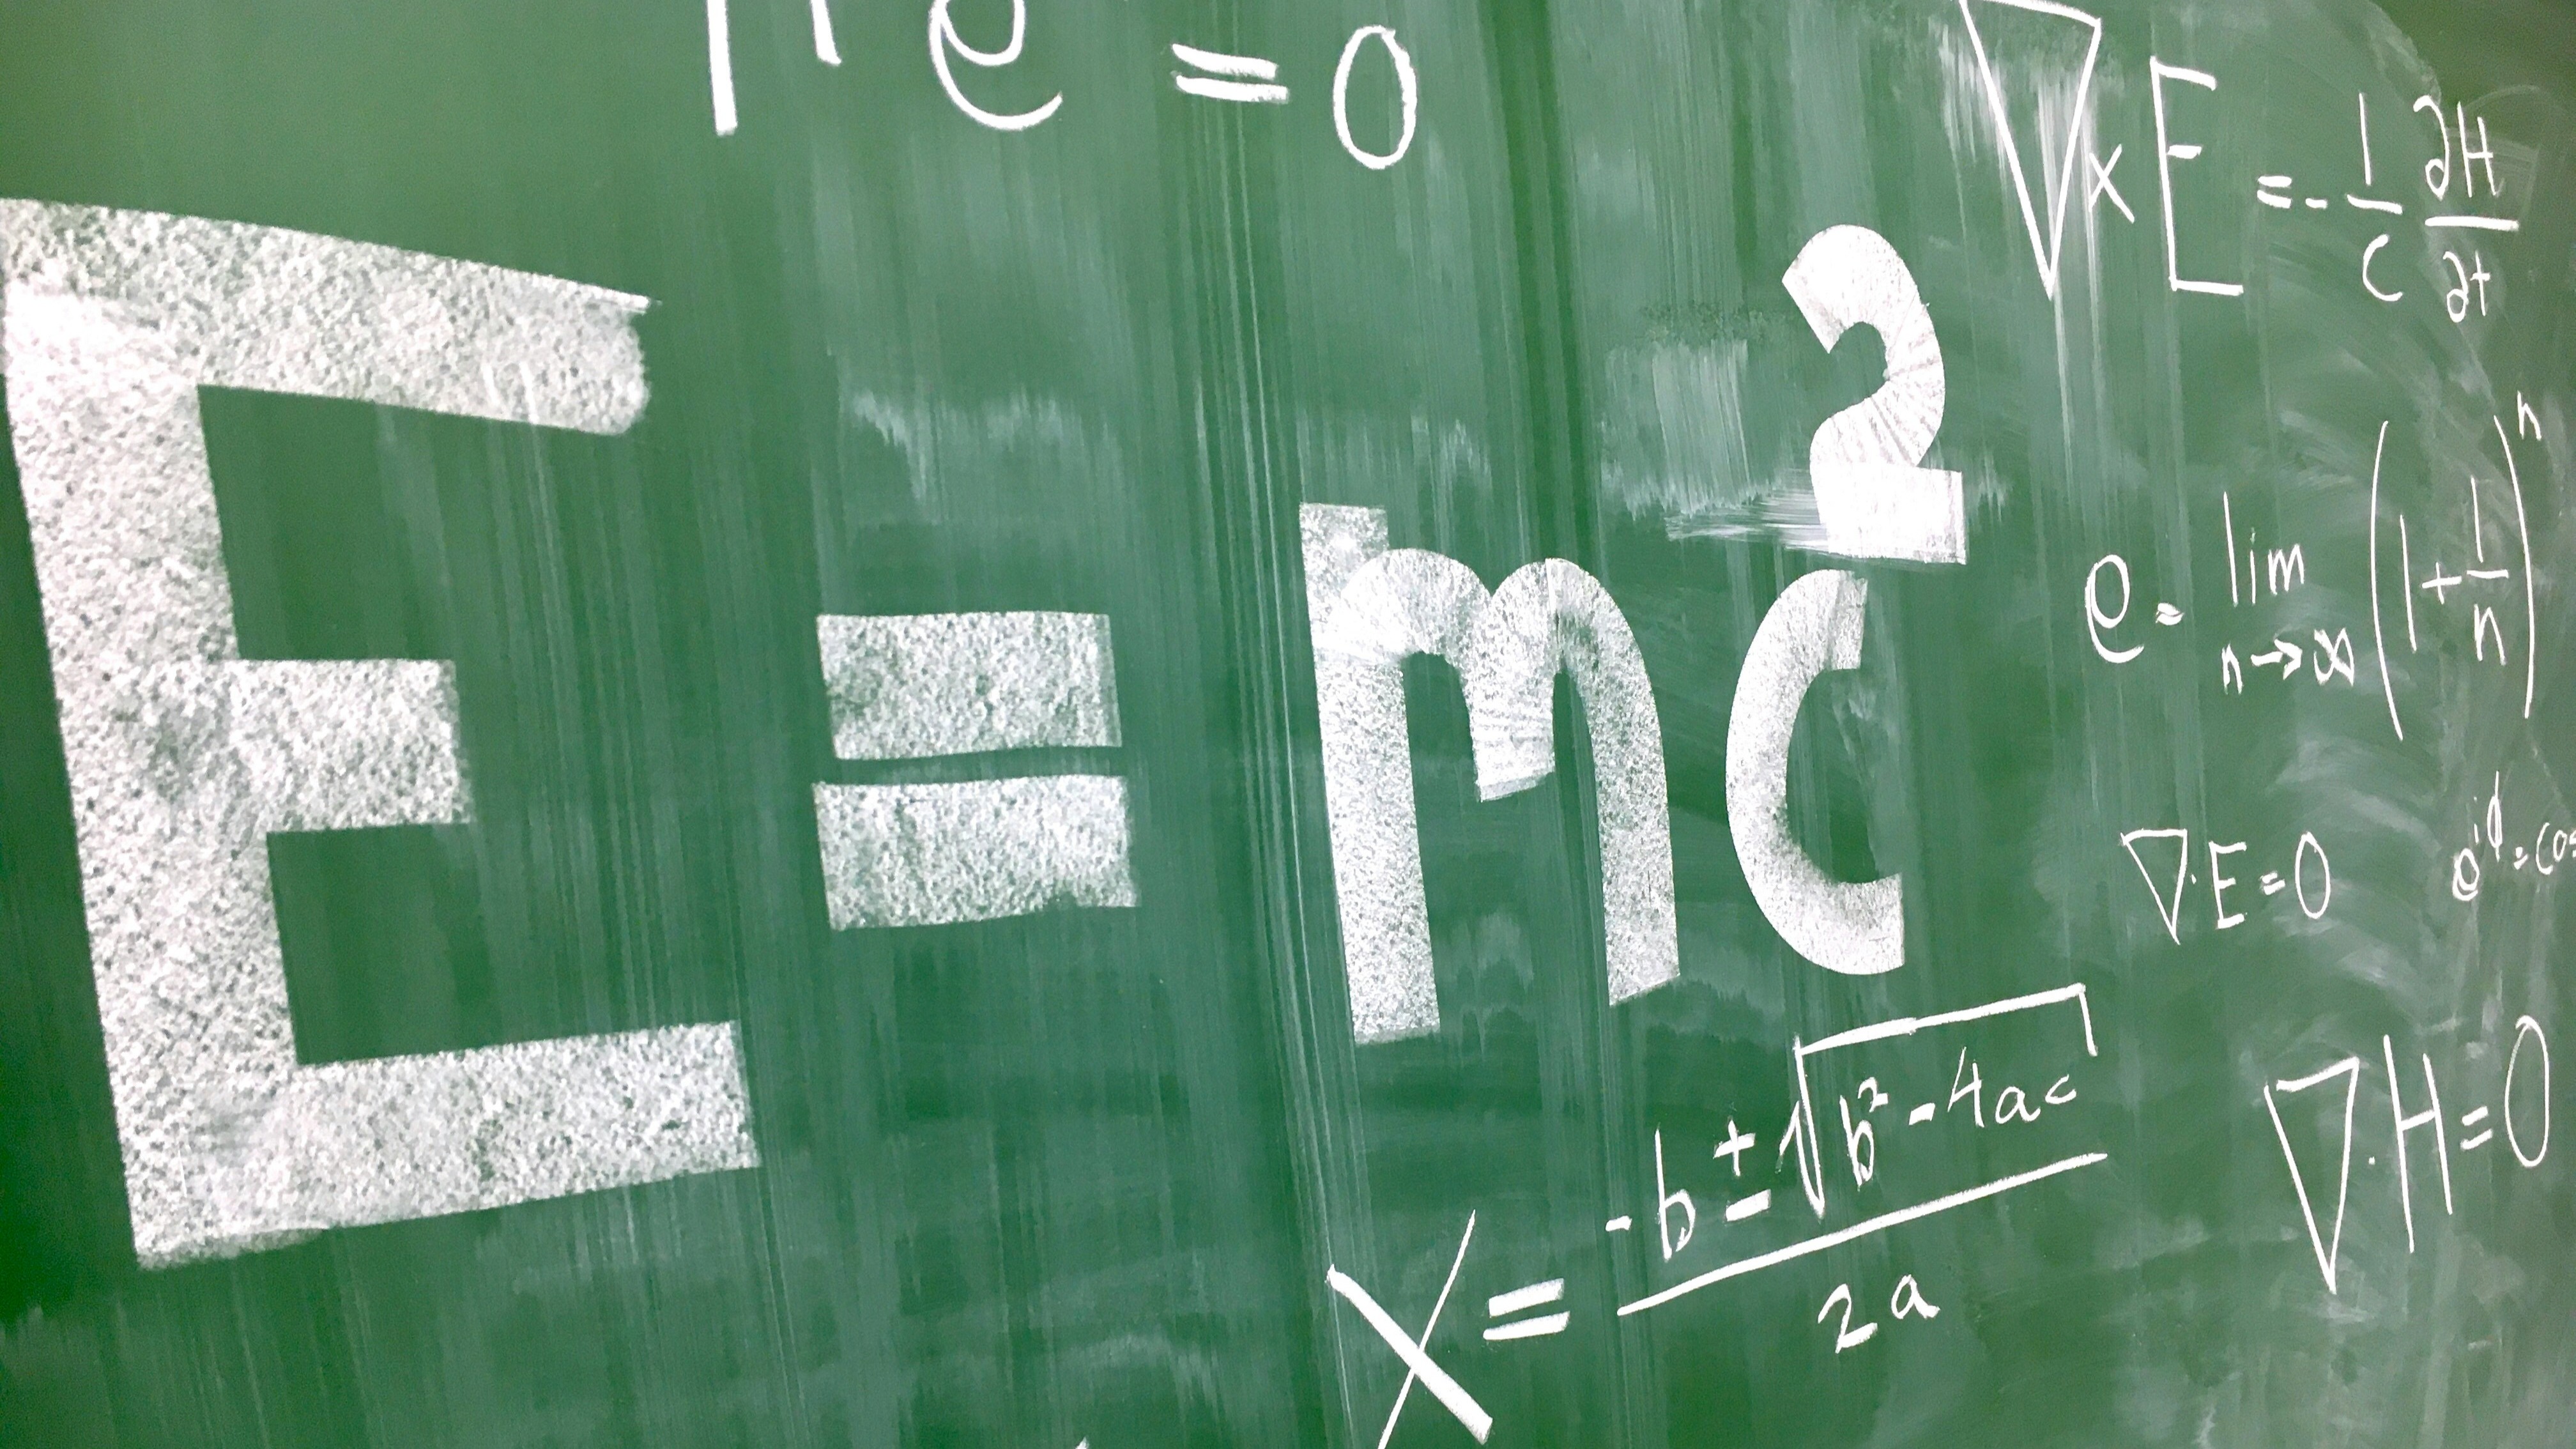 e = 0
∇×E = - 1/c ∂H/∂t
E = mc²
e = lim n→∞ (1 + 1/n)ⁿ
∇·E = 0
e^iϕ = cos
x = -b ± √b² - 4ac / 2a
∇·H = 0